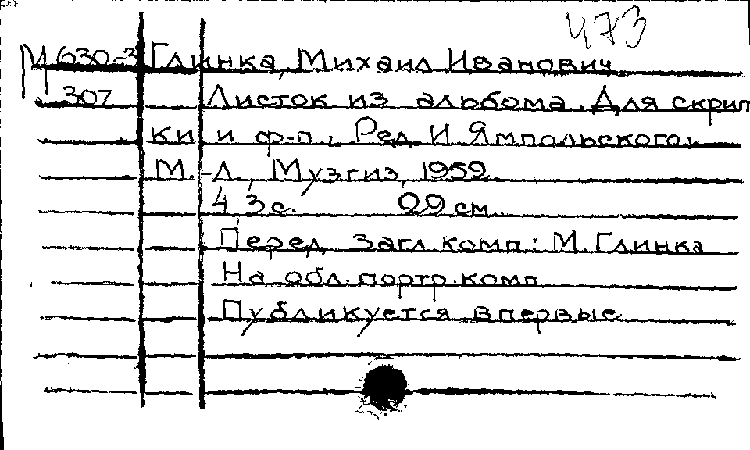 473
М 630-3 Глинка, Михаил Иванович
307 Листок из альбома. Для скрип
ки и ф-п., Ред. И. Ямпольского.
М.-Л., Музгиз, 1959.
4, 3 с. 29 см.
Перед загл. комп: М. Глинка
На обл. портр. комп.
Публикуется впервые